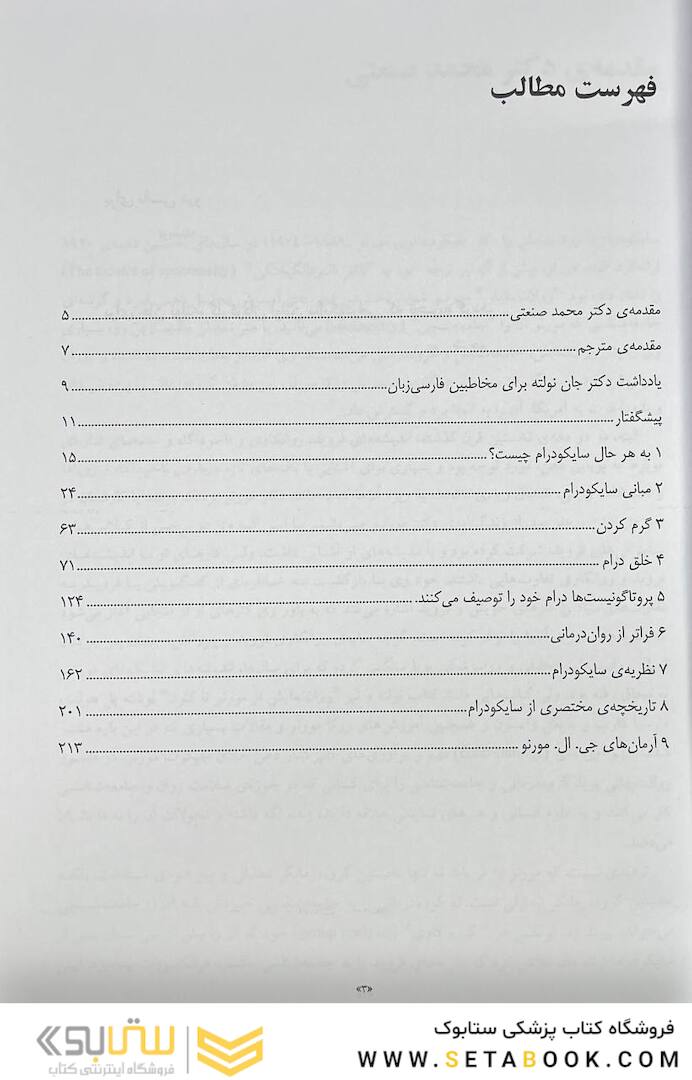 فهرست مطالب
مقدمه‌ی دکتر محمد صنعتی ۵
مقدمه‌ی مترجم ۷
یادداشت دکتر جان نولته برای مخاطبین فارسی‌زبان ۹
پیشگفتار ۱۱
۱ به هر حال سایکودرام چیست؟ ۱۵
۲ مبانی سایکودرام ۲۴
۳ گرم کردن ۶۳
۴ خلق درام ۷۱
۵ پروتاگونیست‌ها درام خود را توصیف می‌کنند. ۱۲۴
۶ فراتر از روان‌درمانی ۱۴۰
۷ نظریه‌ی سایکودرام ۱۶۲
۸ تاریخچه‌ی مختصری از سایکودرام ۲۰۱
۹ آرمان‌های جی. ال. مورنو ۲۱۳
«۳»
فروشگاه کتاب پزشکی ستابوک
WWW.SETABOOK.COM
ستابوک
فروشگاه اینترنتی کتاب